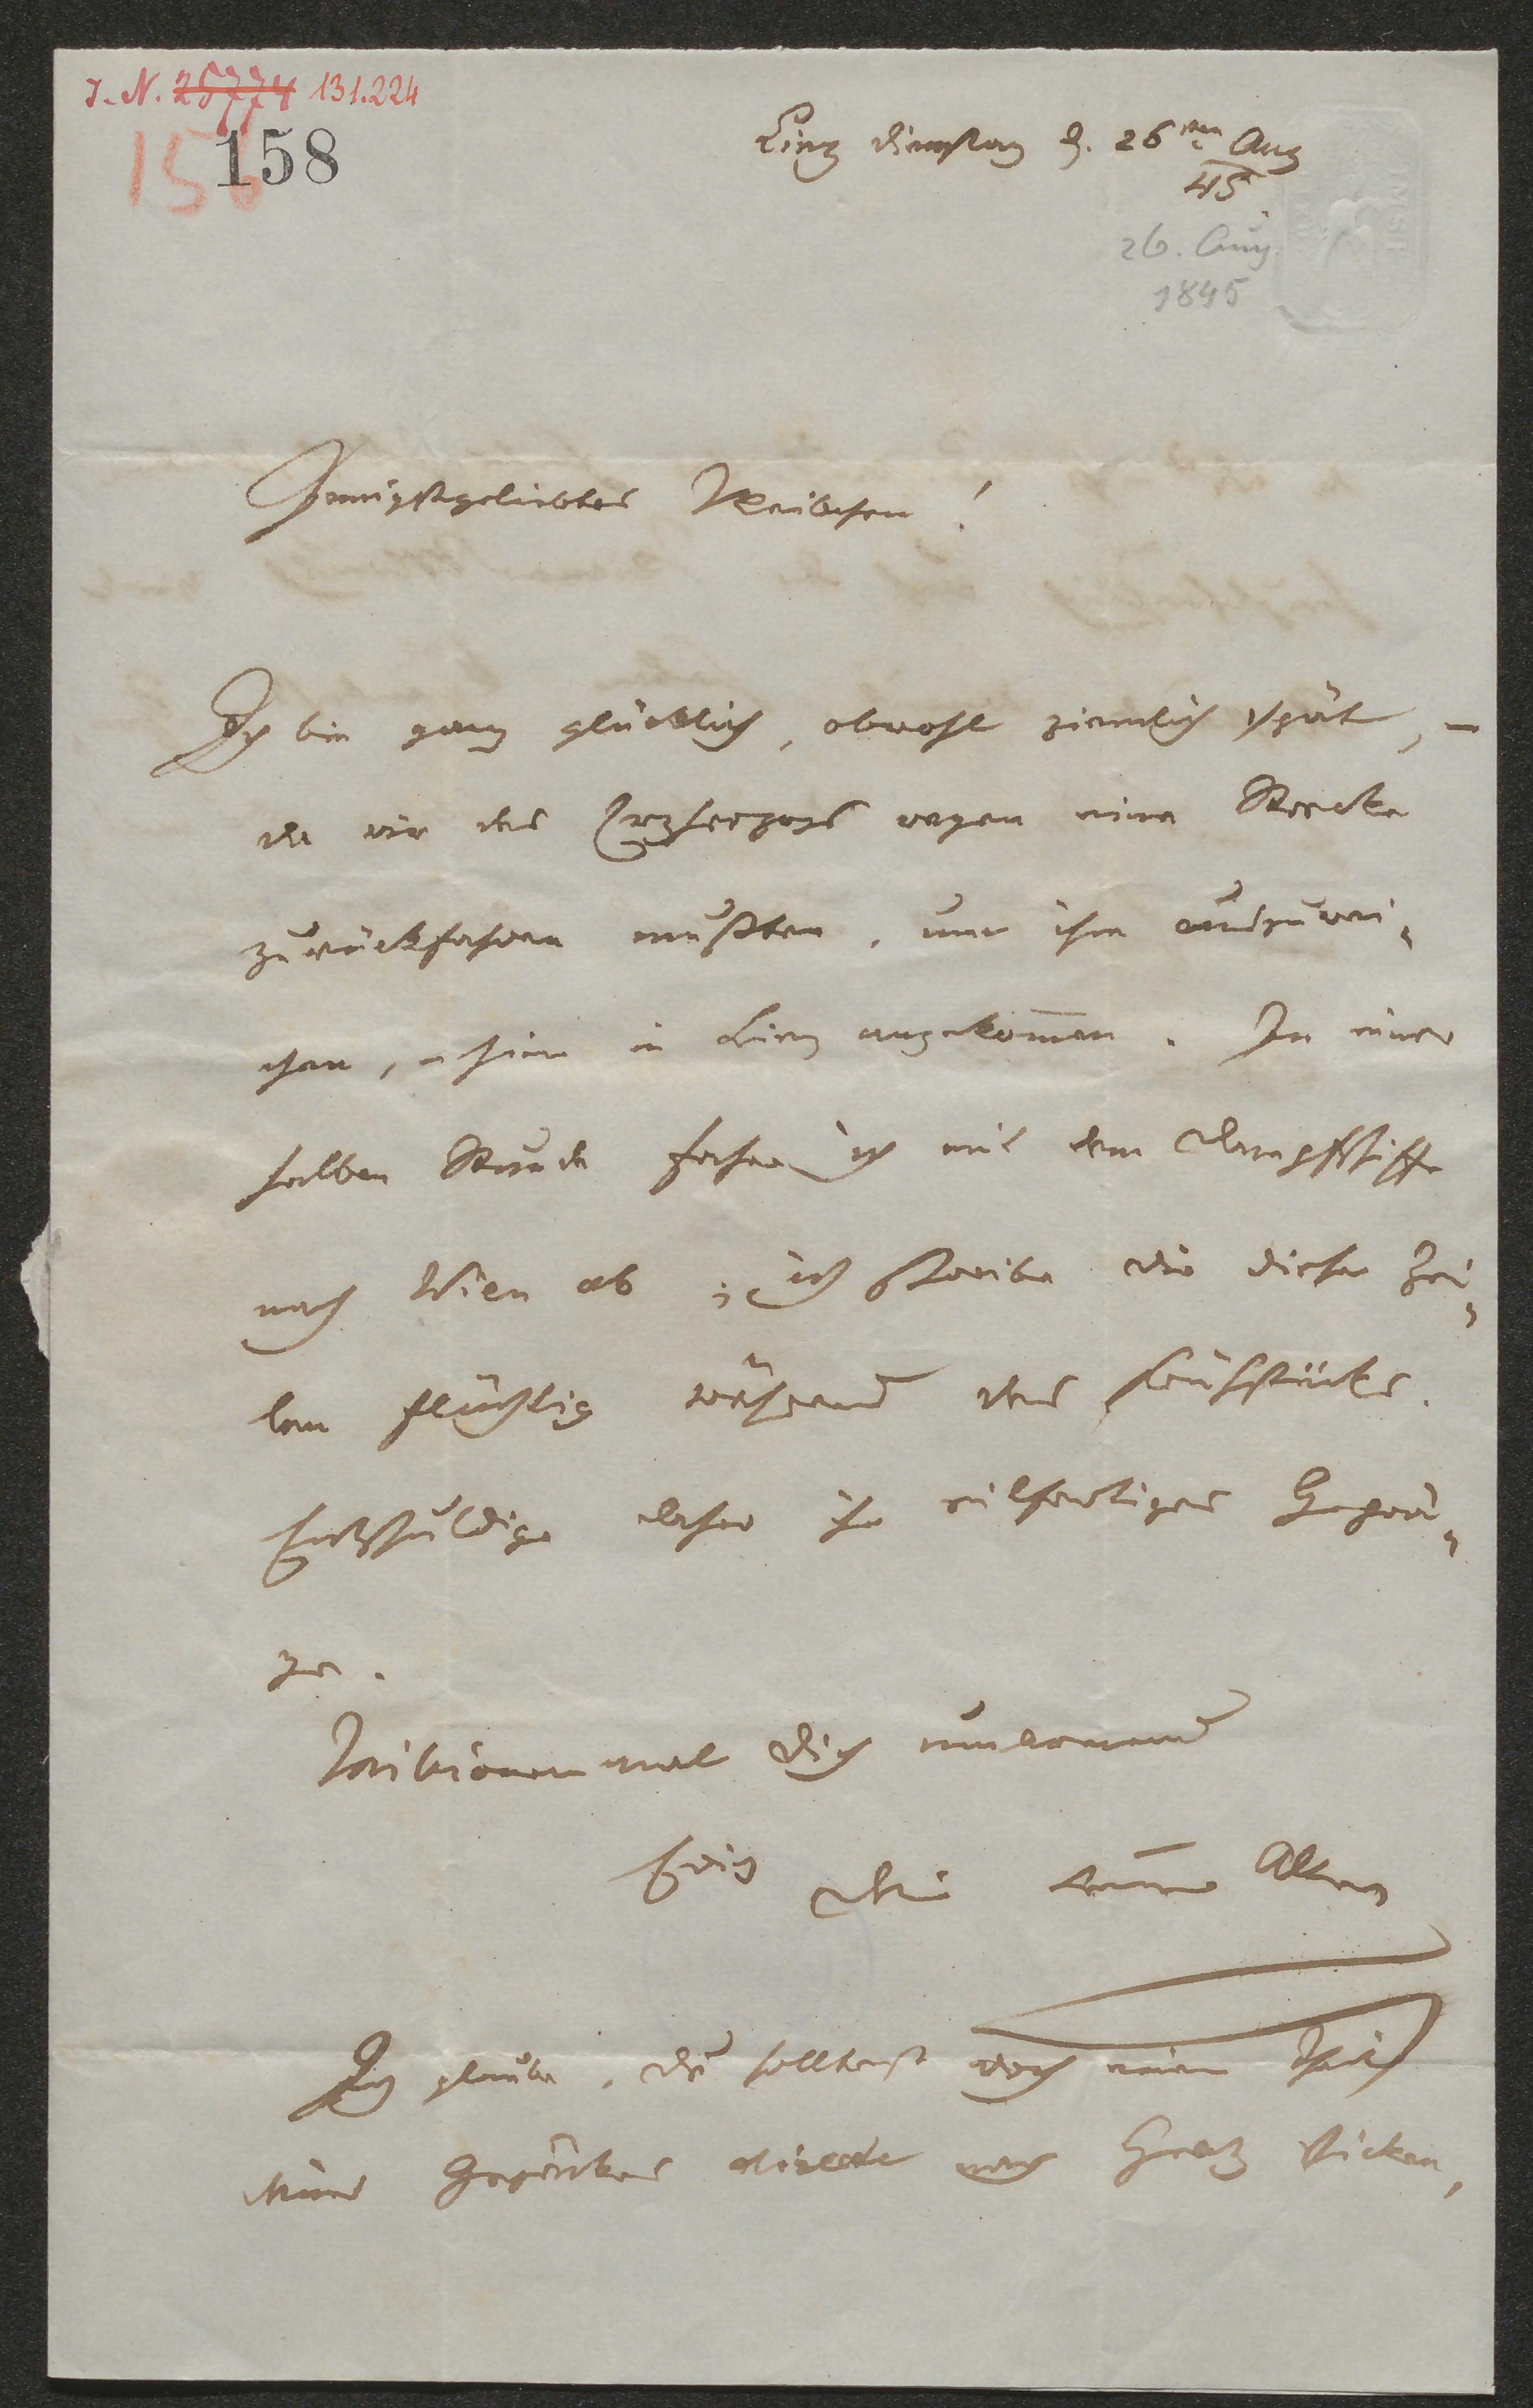 I. N. 25774 131.224
158
158
Linz Dienstag d. 26ten Aug
45.
26. Aug.
1845
Innigstgeliebtes Weibchen!
Ich bin ganz glücklich, obwohl ziemlich spät, –
da wir des Erzherzogs wegen eine Strecke
zurückfahren mußten, um ihm auszuwei-
chen, hier in Linz angekommen. In einer
halben Stunde fahre ich mit dem Dampfschiffe
nach Wien ab; ich schreibe dir diese Zei-
len flüchtig während des Frühstücks.
Entschuldige daher ihr eilfertiges Geprä-
ge.
Trillionenmal dich umarmend
Ewig dein treuer Alter
Ich glaube, du solltest doch einen Theil
deines Gepäckes directe nach Gratz schicken,